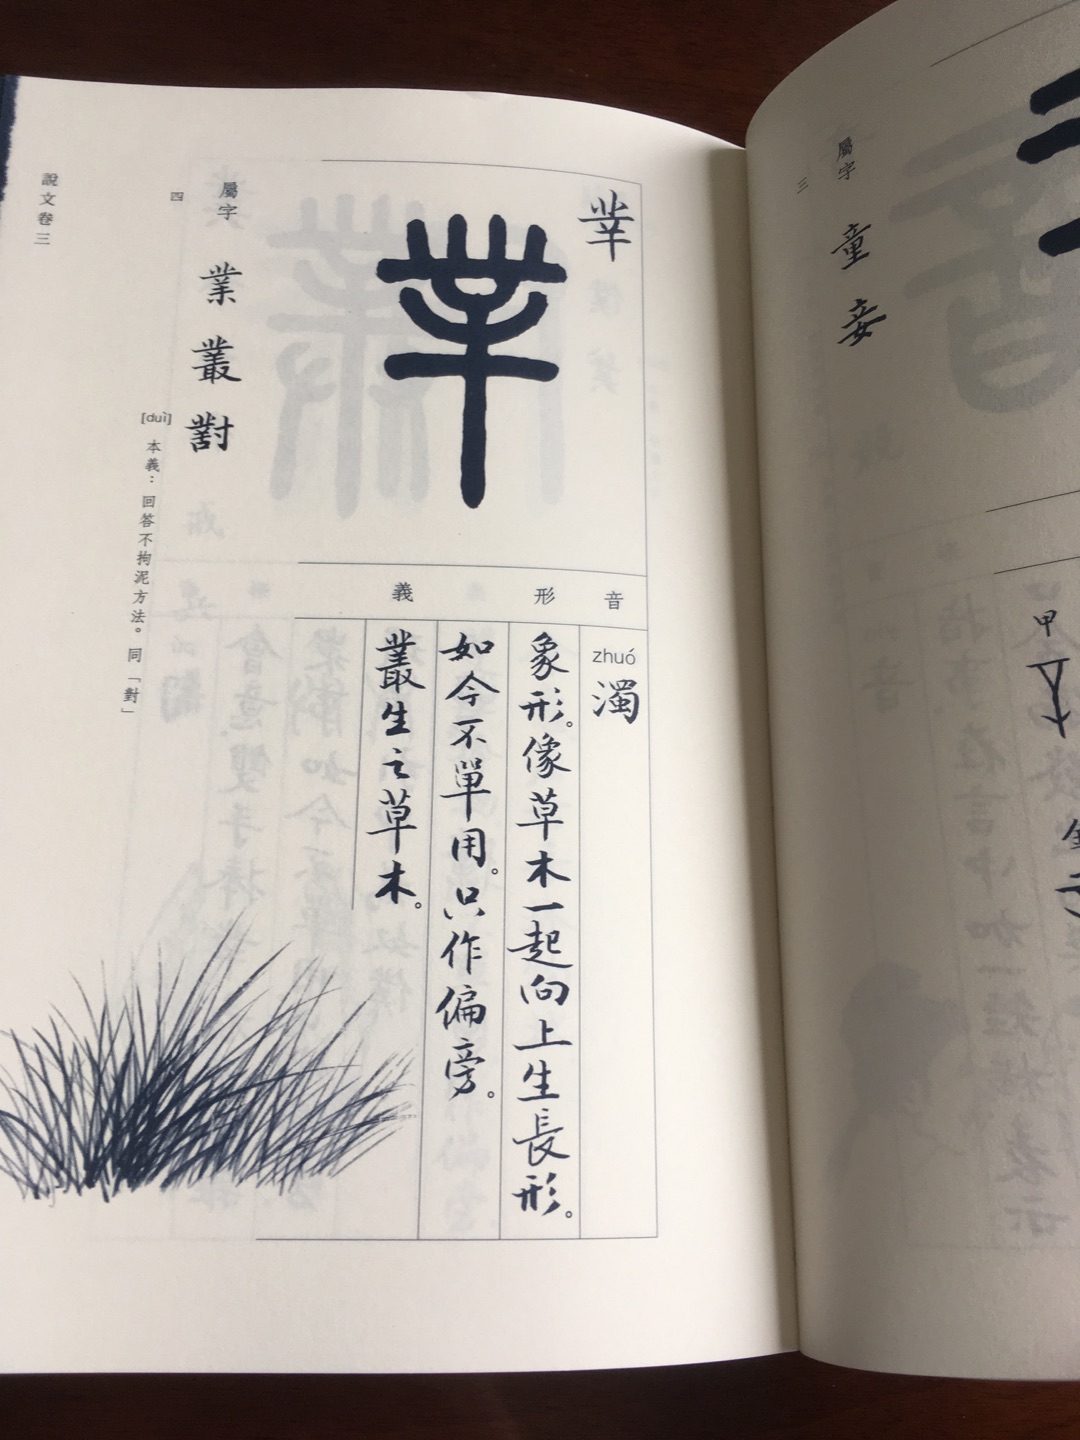 丵
音
zhuó
濁
形
象形。像草木一起向上生長形。
如今不單用。只作偏旁。
義
叢生之草木。
屬字
四
業 叢 對
[duì]
本義：回答不拘泥方法。同「對」
說文卷三
屬字
三
童 妾
甲